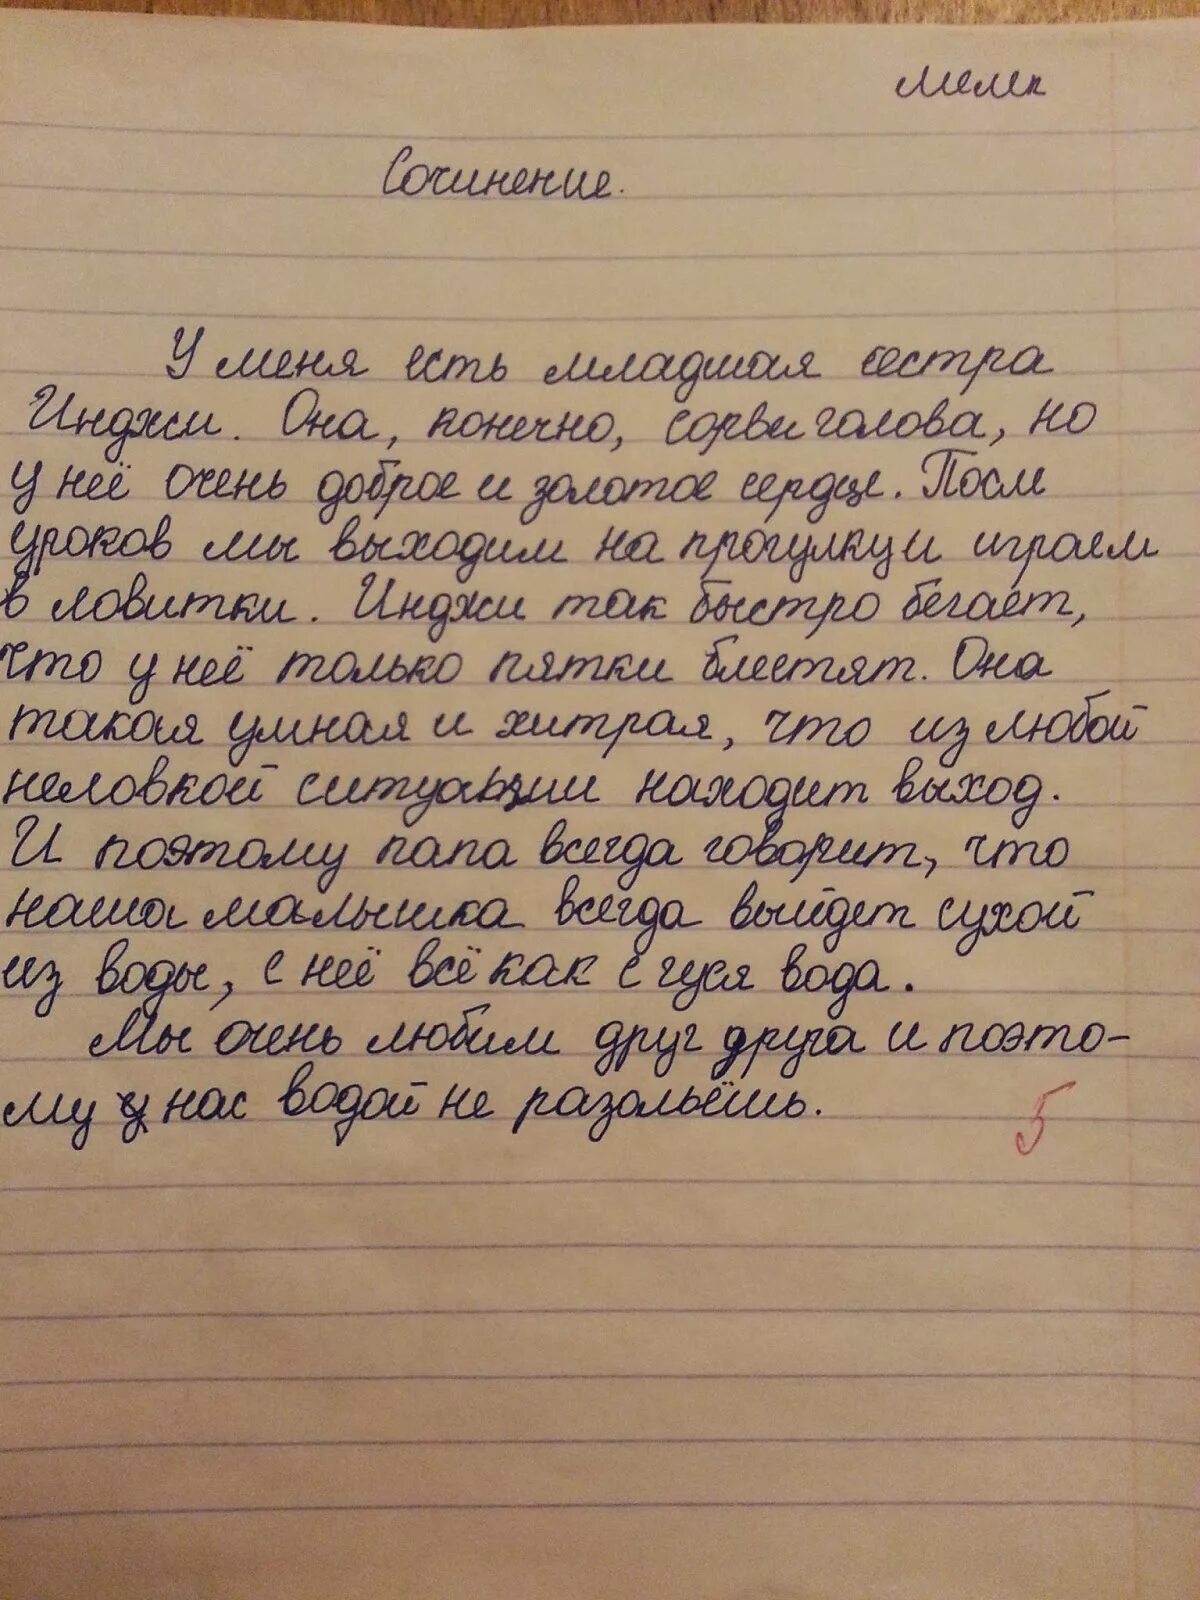 мемп
Сочинение.
У меня есть младшая сестра
Инджи. Она, конечно, сорви голова, но
у неё очень доброе и золотое сердце. Посм
уроков мы выходим на прогулку и играем
в ловитки. Инджи так быстро бегает,
что у неё только пятки блестят. Она
такая умная и хитрая, что из любой
неловкой ситуации находит выход.
И поэтому папа всегда говорит, что
наша малышка всегда выйдет сухой
из воды, с неё всё как с гуся вода.
Мы очень любим друг друга и поэто-
му у нас водой не разольёшь.
5